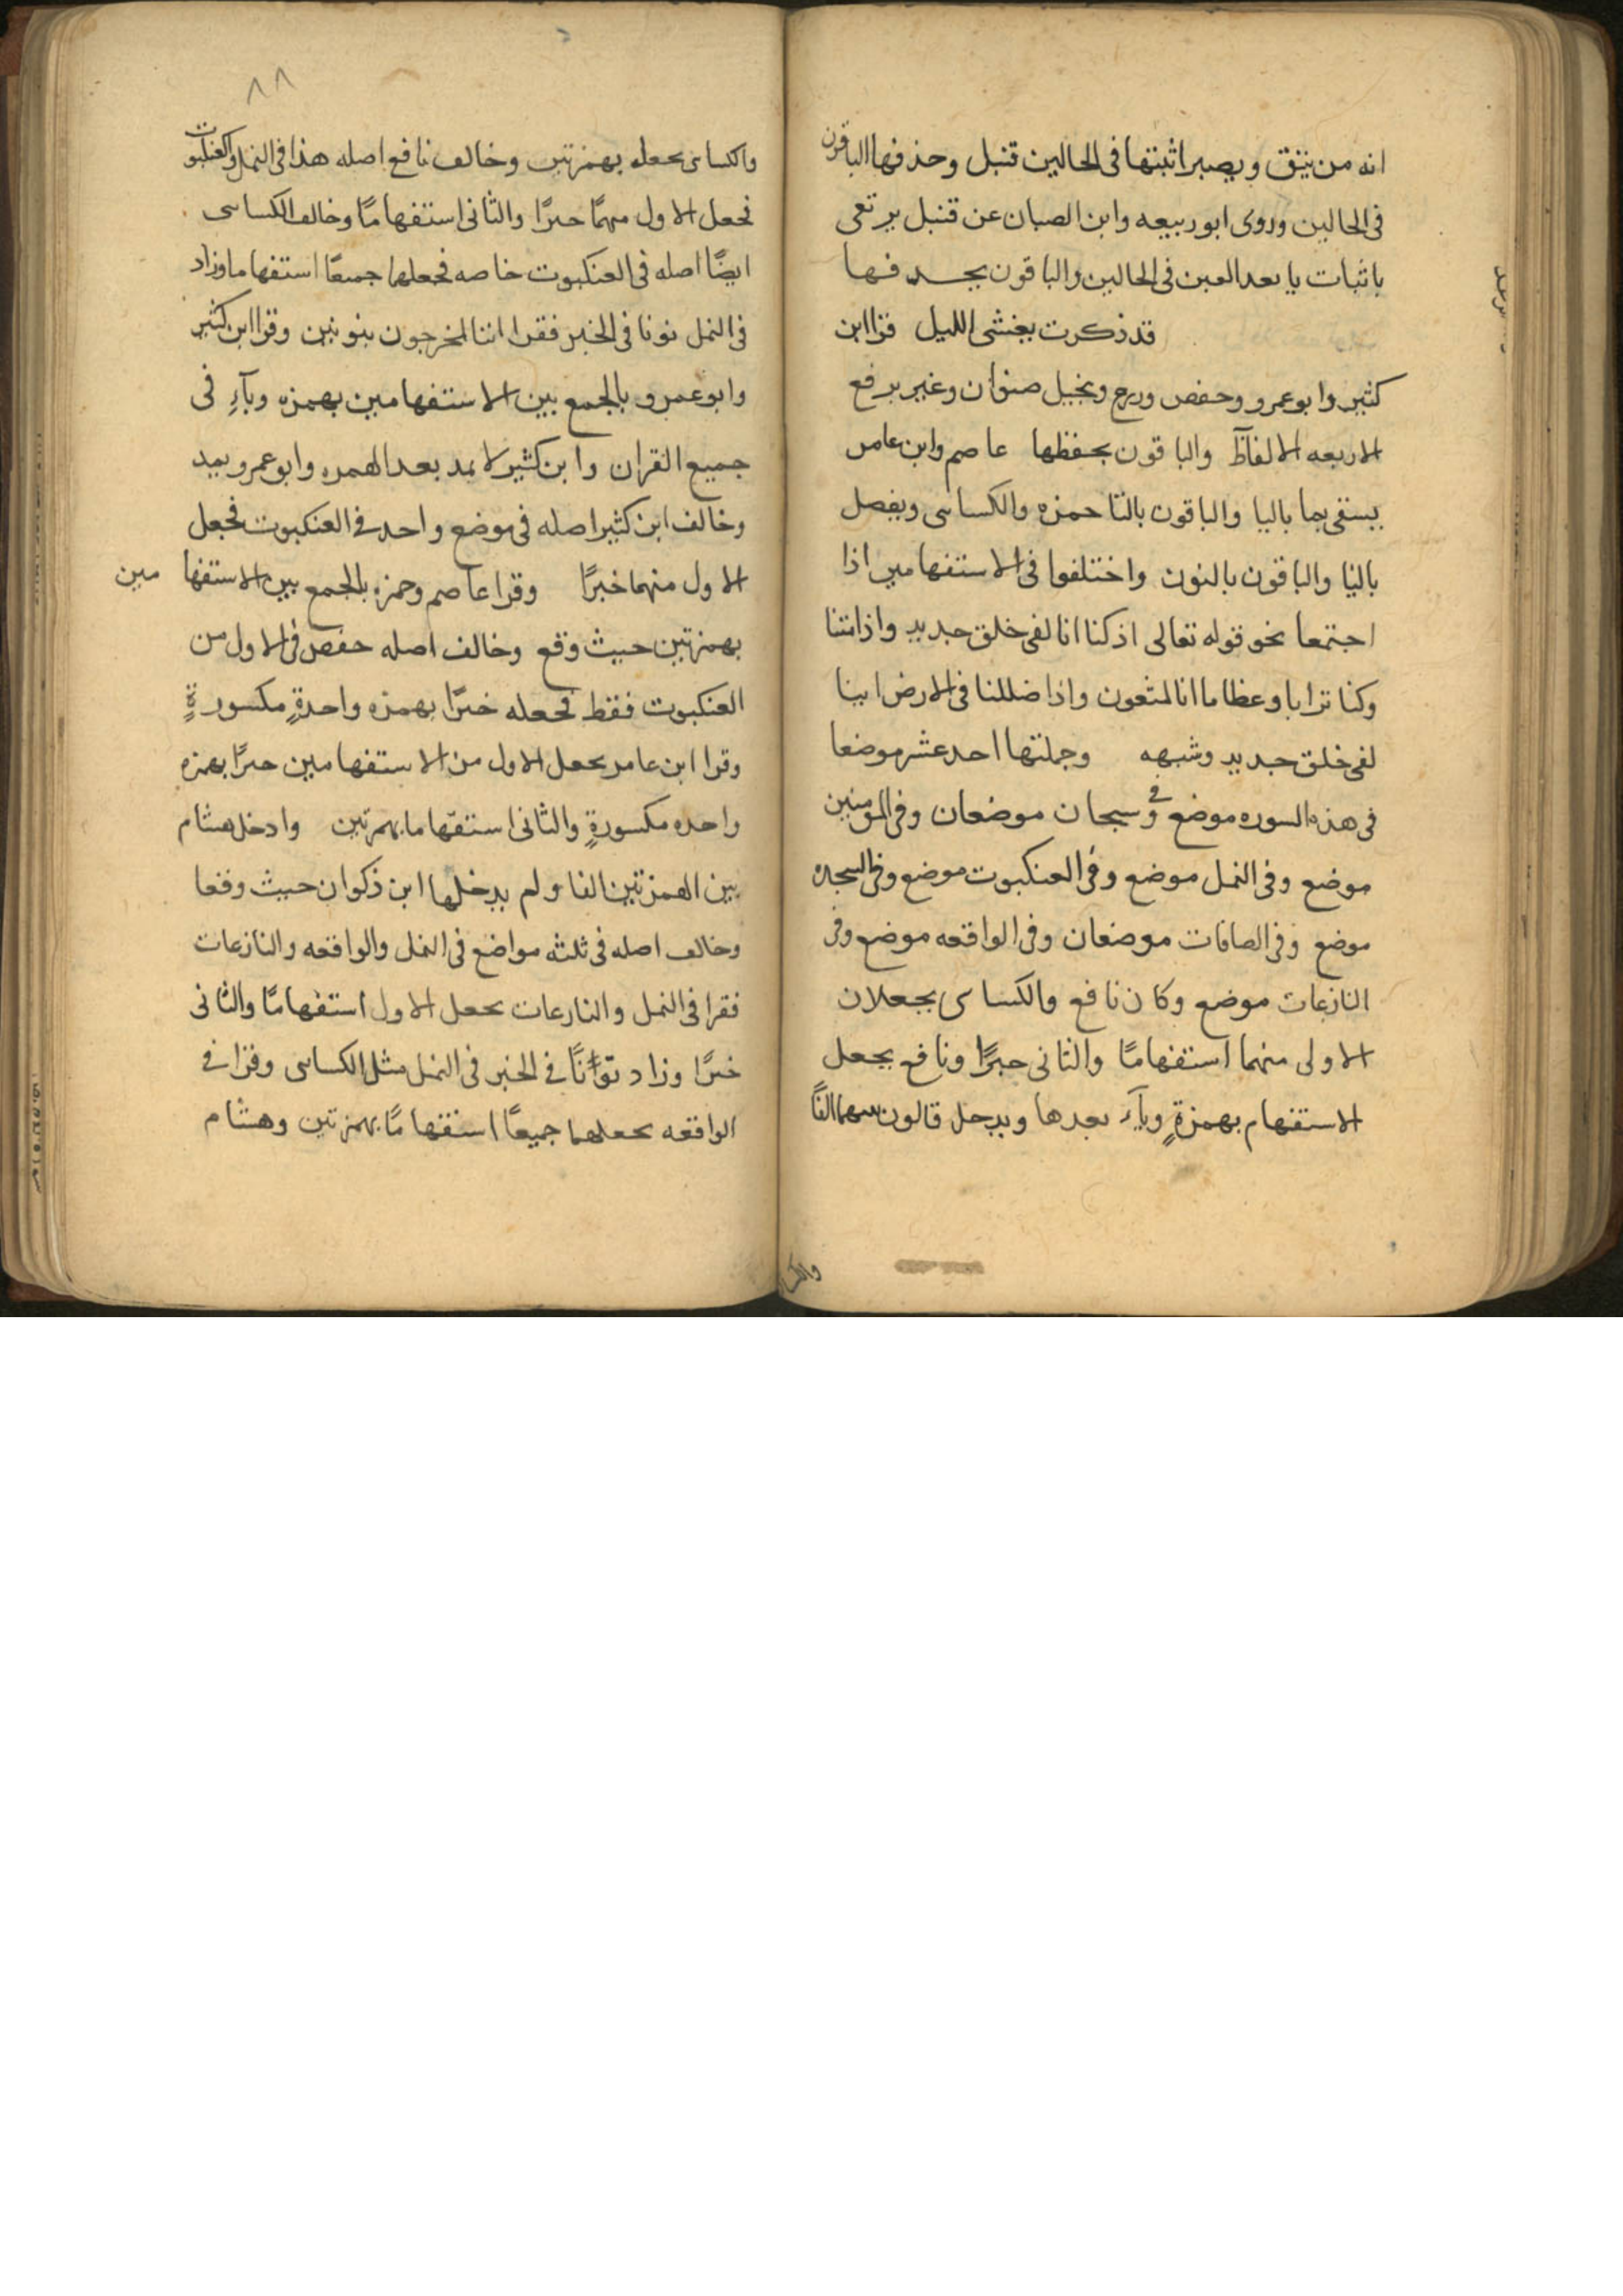 انه من يتق ويصبر اثبتها فى الحالين قنبل وحذفها الباقون
فى الحالين وروى ابو ربيعه وابن الصبان عن قنبل يرتعى
باثبات يا بعد العين فى الحالين والباقون يحذفها
قد ذكرت يغشى الليل قرا ابن
كثير وابو عمرو وحفص وزرع ونخيل صنوان وغير برفع
الاربعه الالفاظ والباقون بخفظها عاصم وابن عامر
يسقى بما باليا والباقون بالتا حمزه والكساى ويفصل
باليا والباقون بالنون واختلفوا فى الاستفهامين اذا
اجتمعا نحو قوله تعالى اذ كنا انا لفى خلق جديد واذا متنا
وكنا ترابا وعظاما انا لمبعوثون واذا ضللنا فى الارض اينا
لفى خلق جديد وشبهه وجملتها احد عشر موضعا
فى هذه السوره موضع وفى سبحان موضعان وفى المومنين
موضع وفى النمل موضع وفى العنكبوت موضع وفى السجده
موضع وفى الصافات موضعان وفى الواقعه موضع وفى
النازعات موضع وكان نافع والكساى يجعلان
الاولى منهما استفهامًا والثانى خبرًا ونافع يجعل
الاستفهام بهمزةٍ ويآءٍ بعدها ويدخل قالون بينهما الفًا
والكسا
٨٨
والكساى يجعله بهمزتين وخالف نافع اصله هذا فى النمل والعنكبوت
فجعل الاول منهمًا خبرًا والثانى استفهامًا وخالف الكساى
ايضًا اصله فى العنكبوت خاصه فجعلهما جميعًا استفهاما وزاد
فى النمل نونا فى الخبر فقرا اننا لمخرجون بنونين وقرا ابن كثير
وابو عمرو بالجمع بين الاستفهامين بهمزه ويآءٍ فى
جميع القران وابن كثير لا يمد بعد الهمزه وابو عمرو يمد
وخالف ابن كثير اصله فى موضع واحد فى العنكبوت فجعل
الاول منهما خبرًا وقرا عاصم وحمزه بالجمع بين الاستفها مين
بهمزتين حيث وقع وخالف اصله حفص فى الاول من
العنكبوت فقط فجعله خبرًا بهمزه واحدةٍ مكسورةٍ
وقرا ابن عامر بجعل الاول من الاستفهامين خبرًا بهمزه
واحده مكسورةٍ والثانى استفهاما بهمزتين وادخل هشام
بين الهمزتين الفا ولم يدخلها ابن ذكوان حيث وقعا
وخالف اصله فى ثلثه مواضع فى النمل والواقعه والنازعات
فقرا فى النمل والنازعات بجعل الاول استفهامًا والثانى
خبرًا وزاد نونًا فى الخبر فى النمل مثل الكساى وقرا فى
الواقعه بجعلهما جميعًا استفهامًا بهمزتين وهشام